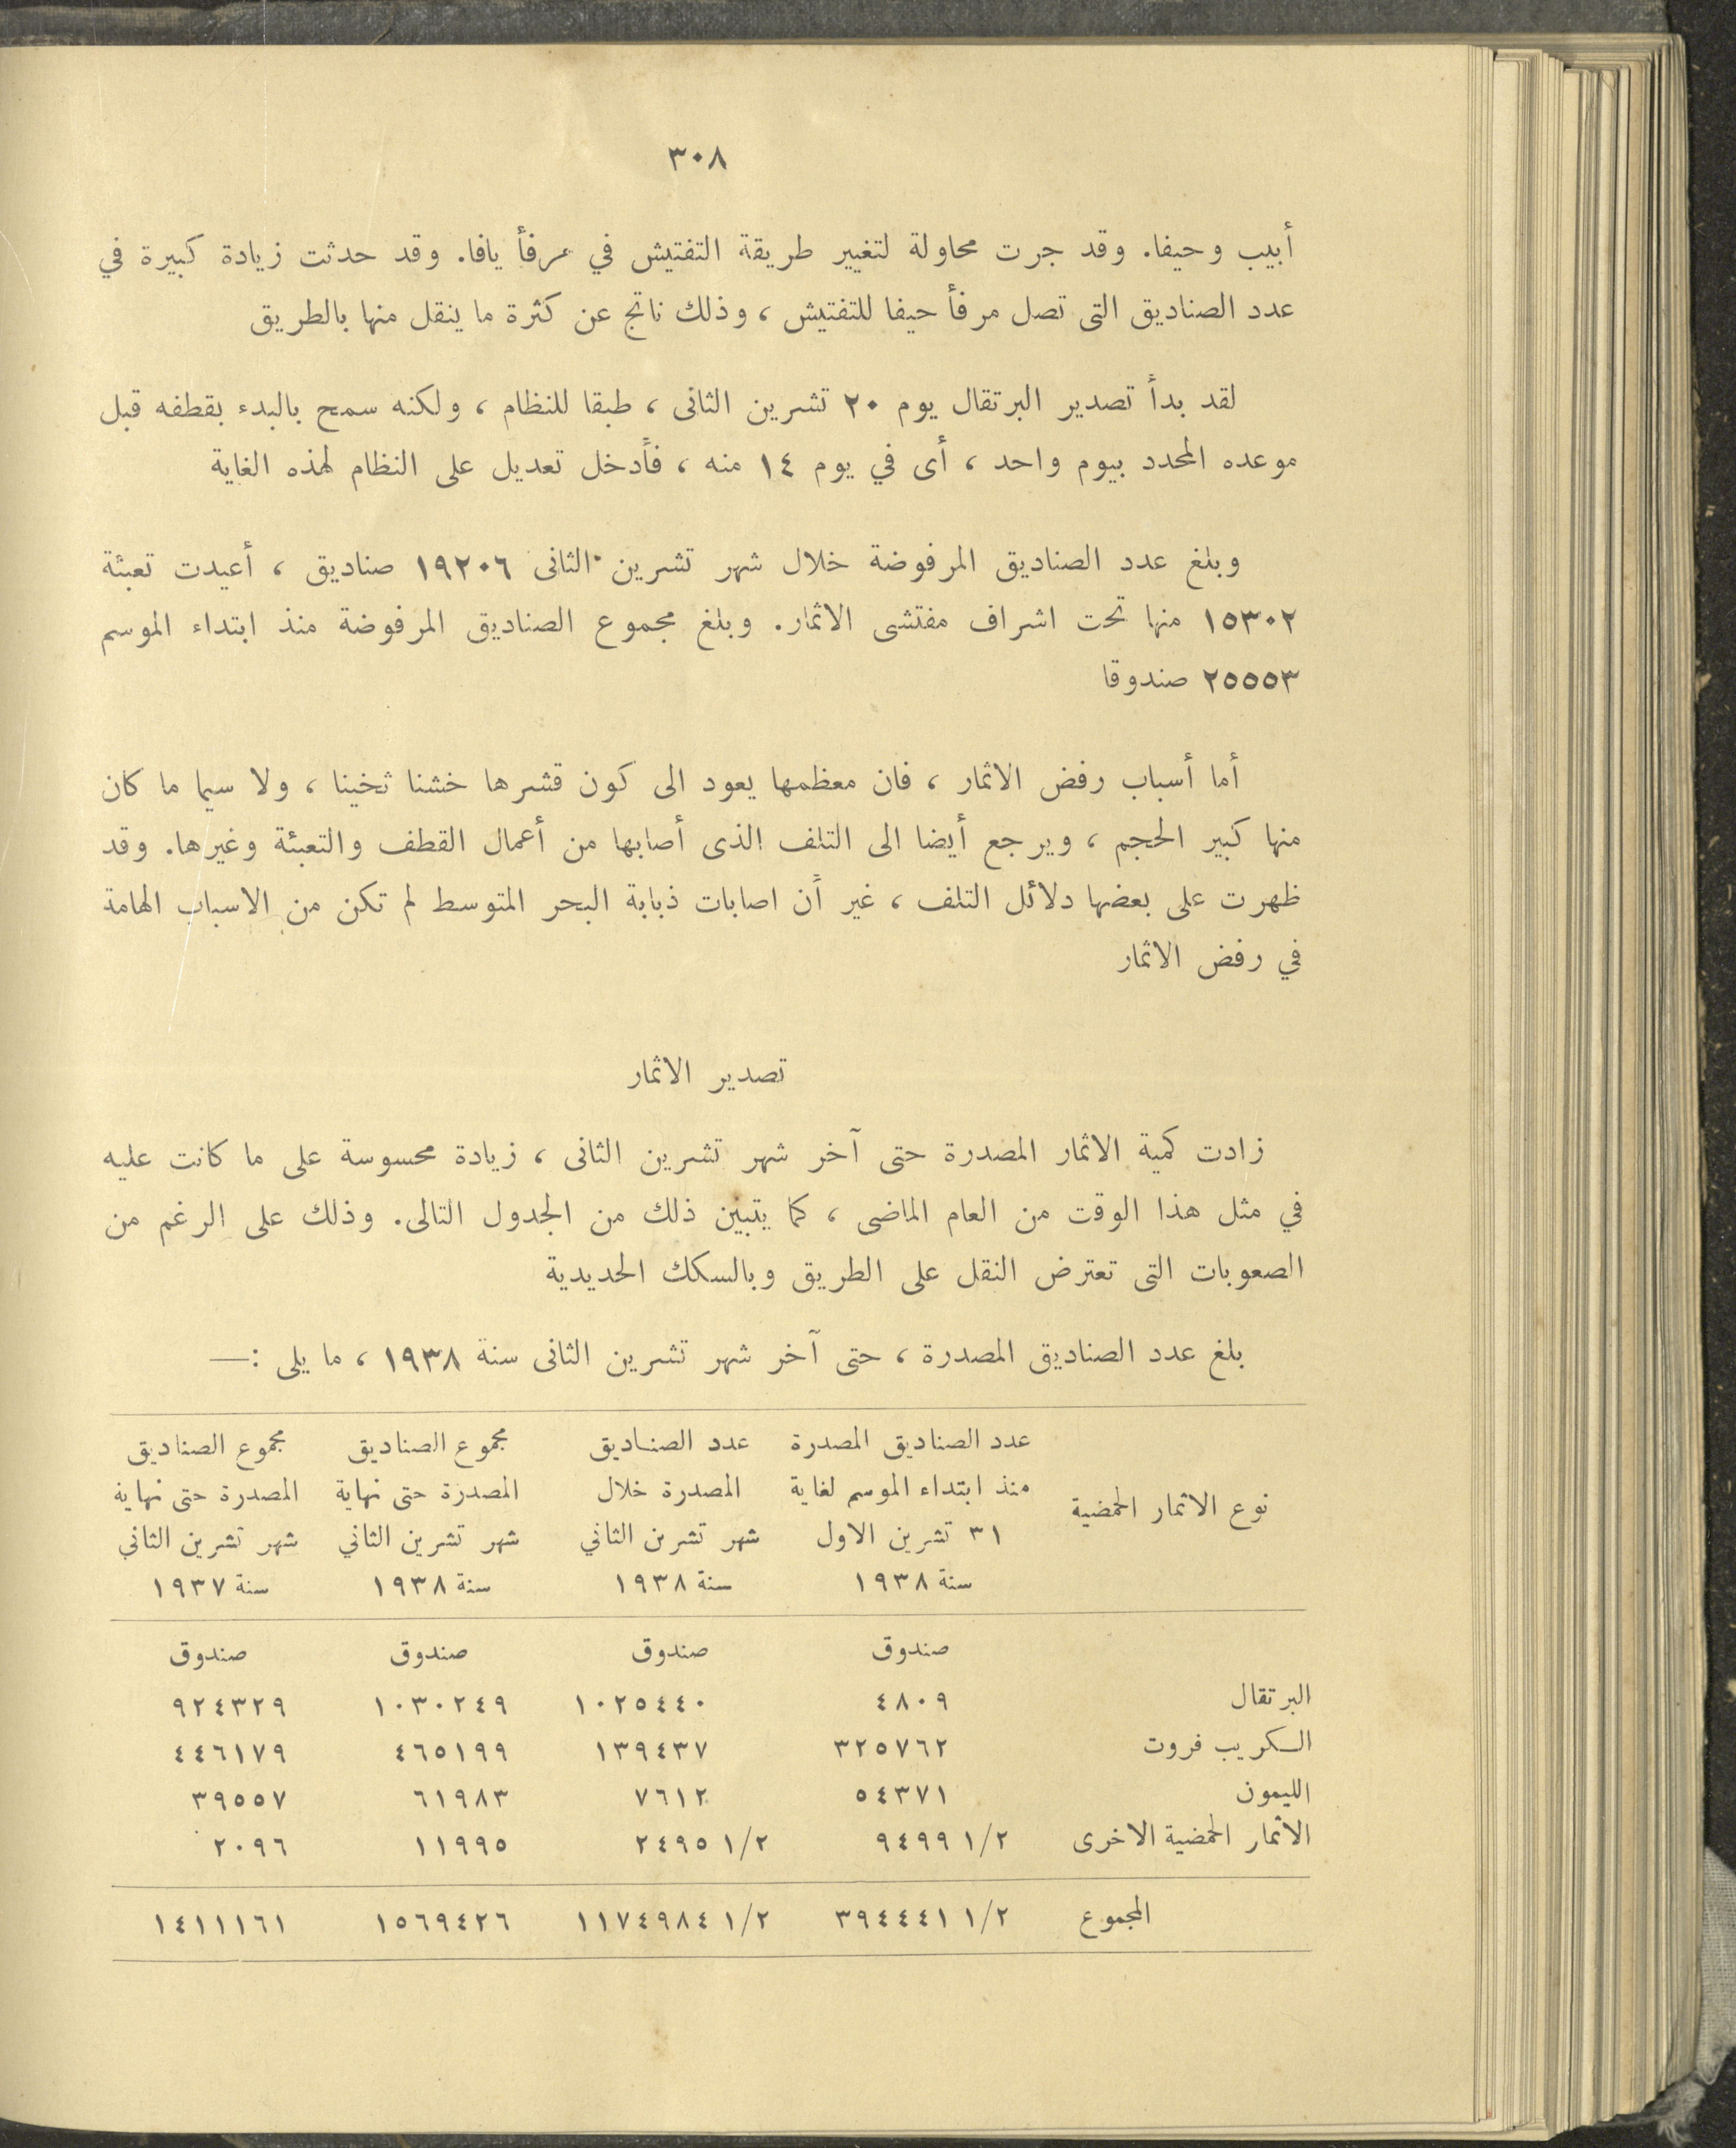 ٣٠٨
أبيب وحيفا. وقد جرت محاولة لتغيير طريقة التفتيش في مرفأ يافا. وقد حدثت زيادة كبيرة في
عدد الصناديق التى تصل مرفأ حيفا للتفتيش ، وذلك ناتج عن كثرة ما ينقل منها بالطريق
لقد بدأ تصدير البرتقال يوم ٢٠ تشرين الثانى ، طبقا للنظام ، ولكنه سمح بالبدء بقطفه قبل
موعده المحدد بيوم واحد ، أى في يوم ١٤ منه ، فأدخل تعديل على النظام لهذه الغاية
وبلغ عدد الصناديق المرفوضة خلال شهر تشرين الثانى ١٩٢٠٦ صناديق ، أعيدت تعبئة
١٥٣٠٢ منها تحت اشراف مفتشى الاثمار. وبلغ مجموع الصناديق المرفوضة منذ ابتداء الموسم
٢٥٥٥٣ صندوقا
أما أسباب رفض الاثمار ، فان معظمها يعود الى كون قشرها خشنا ثخينا ، ولا سيما ما كان
منها كبير الحجم ، ويرجع أيضا الى التلف الذى أصابها من أعمال القطف والتعبئة وغيرها. وقد
ظهرت على بعضها دلائل التلف ، غير أن اصابات ذبابة البحر المتوسط لم تكن من الاسباب الهامة
في رفض الاثمار
تصدير الاثمار
زادت كمية الاثمار المصدرة حتى آخر شهر تشرين الثانى ، زيادة محسوسة على ما كانت عليه
في مثل هذا الوقت من العام الماضى ، كما يتبين ذلك من الجدول التالى. وذلك على الرغم من
الصعوبات التى تعترض النقل على الطريق وبالسكك الحديدية
بلغ عدد الصناديق المصدرة ، حتى آخر شهر تشرين الثانى سنة ١٩٣٨ ، ما يلى :—
عدد الصناديق المصدرة عدد الصناديق مجموع الصناديق مجموع الصناديق
منذ ابتداء الموسم لغاية المصدرة خلال المصدرة حتى نهاية المصدرة حتى نهاية
نوع الاثمار الحمضية
٣١ تشرين الاول شهر تشرين الثاني شهر تشرين الثاني شهر تشرين الثاني
سنة ١٩٣٨ سنة ١٩٣٨ سنة ١٩٣٨ سنة ١٩٣٧
صندوق صندوق صندوق صندوق
البرتقال ٤٨٠٩ ١٠٢٥٤٤٠ ١٠٣٠٢٤٩ ٩٢٤٣٢٩
الكريب فروت ٣٢٥٧٦٢ ١٣٩٤٣٧ ٤٦٥١٩٩ ٤٤٦١٧٩
الليمون ٥٤٣٧١ ٧٦١٢ ٦١٩٨٣ ٣٩٥٥٧
الاثمار الحمضية الاخرى ٩٤٩٩ ١/٢ ٢٤٩٥ ١/٢ ١١٩٩٥ ٢٠٩٦
المجموع ٣٩٤٤٤١ ١/٢ ١١٧٤٩٨٤ ١/٢ ١٥٦٩٤٢٦ ١٤١١١٦١